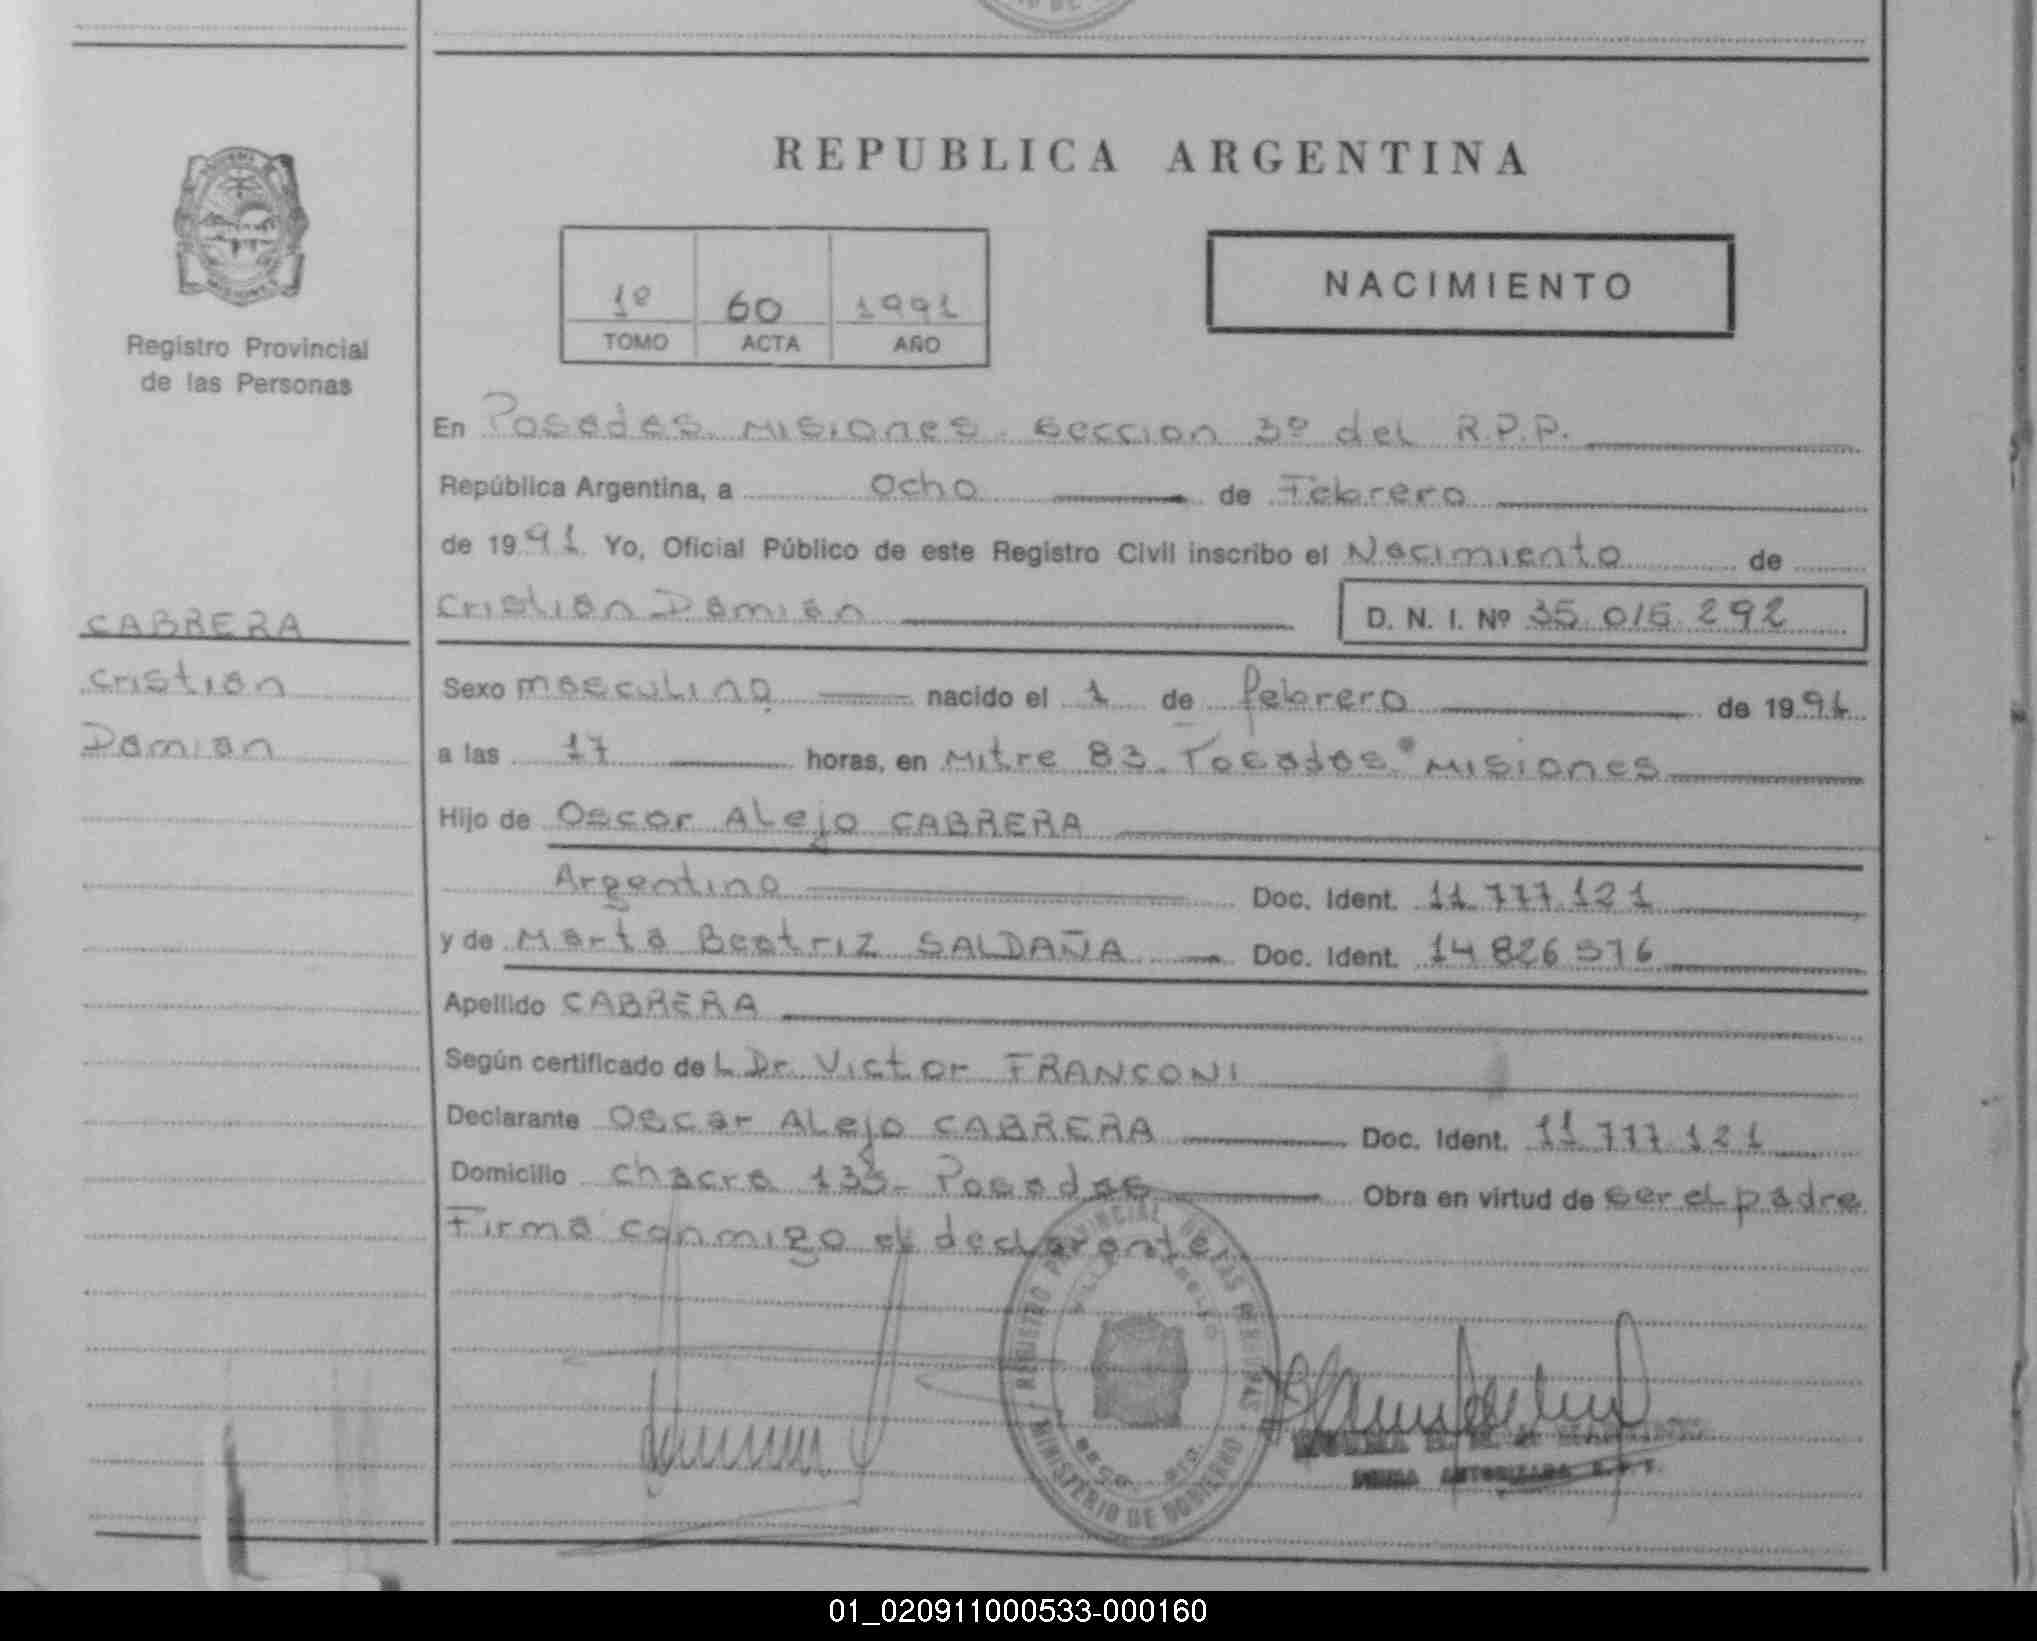 REPUBLICA ARGENTINA
Registro Provincial
de las Personas
1º 60 1991
TOMO ACTA AÑO
NACIMIENTO
En Posadas. Misiones. seccion 3º del R.P.P.
República Argentina, a ocho de Febrero
de 1991 Yo, Oficial Público de este Registro Civil inscribo el Nacimiento de
Cristian Damian D. N. I. Nº 35.015.292
CABRERA
Cristian
Damian
Sexo masculino nacido el 1 de febrero de 1991
a las 17 horas, en Mitre 83. Posadas Misiones
Hijo de Oscar Alejo CABRERA
Argentino Doc. Ident. 11.777.121
y de Marta Beatriz SALDAÑA Doc. Ident. 14 826 576
Apellido CABRERA
Según certificado de L Dr. Victor FRANCONI
Declarante Oscar Alejo CABRERA Doc. Ident. 11 777.121
Domicilio chacra 133- Posadas Obra en virtud de ser el padre
Firma conmigo el declarante
REGISTRO PROVINCIAL DE LAS PERSONAS
MINISTERIO DE GOBIERNO
FIRMA AUTORIZADA R.P.P.
01_020911000533-000160